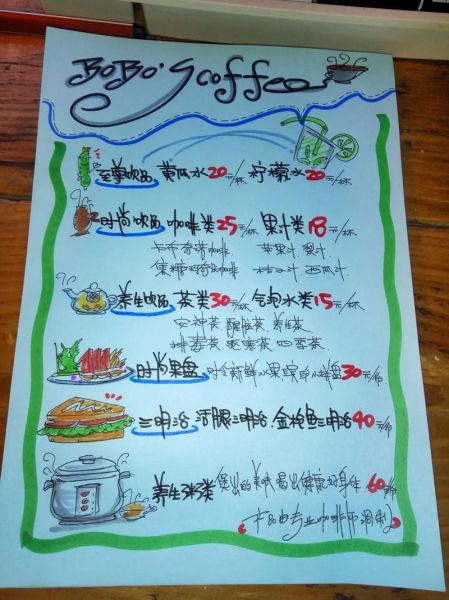 BoBo's coffee
至尊饮品 黄瓜水20元/杯 柠檬水20元/杯
时尚饮品 咖啡类25元/杯 果汁类18元/杯
卡布奇诺咖啡 苹果汁 梨汁
焦糖玛奇朵咖啡 桔子汁 西瓜汁
养生饮品 茶类30元/杯 气泡水类15元/杯
安神茶 醒脑茶 养生茶
排毒茶 驱寒茶 四季茶
时尚果盘 时令新鲜水果 拼盘30元/份
三明治 活腿三明治 金枪鱼三明治40元/份
养生粥类 煲出的美味 喝出健康好身体 60元/份
产品由专业咖啡师调制